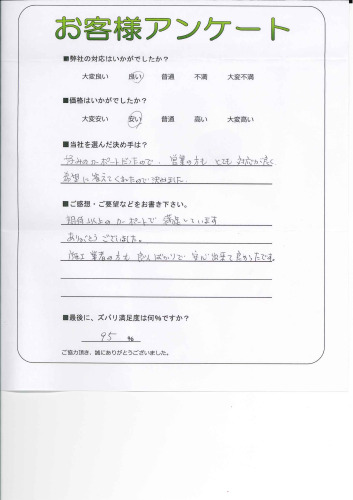 お客様アンケート
■弊社の対応はいかがでしたか？
大変良い 良い 普通 不満 大変不満
■価格はいかがでしたか？
大変安い 安い 普通 高い 大変高い
■当社を選んだ決め手は？
好みのカーポートだったので、営業の方も とても 対応が良く
希望に答えてくれたので決めました
■ご感想・ご要望などをお書き下さい。
期待以上のカーポートで 満足しています
ありがとうございました。
施工業者の方も 良い人ばかりで 安心出来て良かったです。
■最後に、ズバリ満足度は何％ですか？
95 ％
ご協力頂き、誠にありがとうございました。